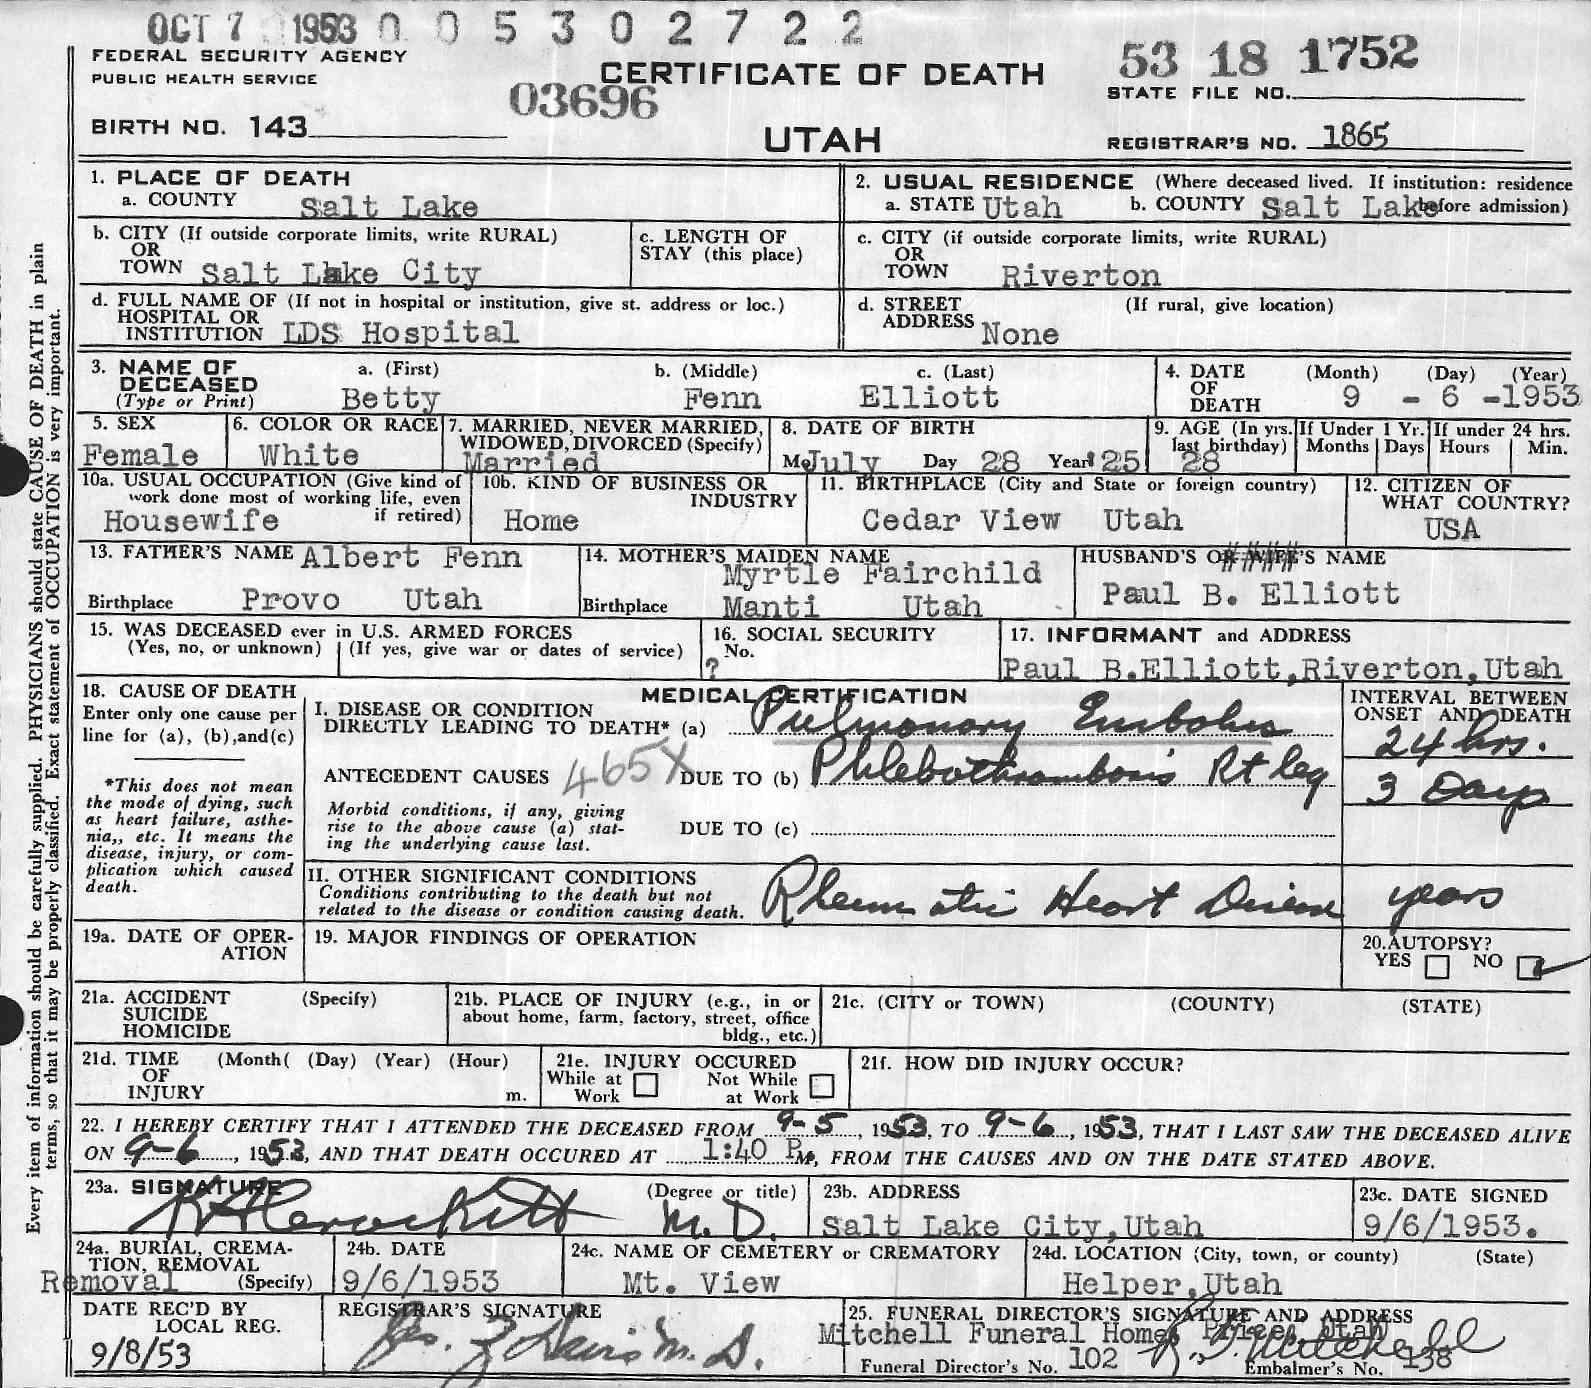 OCT 7 1953 0 0 5 3 0 2 7 2 2
FEDERAL SECURITY AGENCY
PUBLIC HEALTH SERVICE
CERTIFICATE OF DEATH
53 18 1752
STATE FILE NO.
03696
BIRTH NO. 143
UTAH
REGISTRAR'S NO. 1865
1. PLACE OF DEATH
a. COUNTY Salt Lake
2. USUAL RESIDENCE (Where deceased lived. If institution: residence before admission)
a. STATE Utah b. COUNTY Salt Lake
b. CITY (If outside corporate limits, write RURAL)
OR
TOWN Salt Lake City
c. LENGTH OF
STAY (this place)
c. CITY (if outside corporate limits, write RURAL)
OR
TOWN Riverton
d. FULL NAME OF (If not in hospital or institution, give st. address or loc.)
HOSPITAL OR
INSTITUTION LDS Hospital
d. STREET (If rural, give location)
ADDRESS None
3. NAME OF
DECEASED
(Type or Print)
a. (First) b. (Middle) c. (Last)
Betty Fenn Elliott
4. DATE (Month) (Day) (Year)
OF
DEATH 9 - 6 -1953
5. SEX
Female
6. COLOR OR RACE
White
7. MARRIED, NEVER MARRIED,
WIDOWED, DIVORCED (Specify)
Married
8. DATE OF BIRTH
Mo July Day 28 Year 25
9. AGE (In yrs.
last birthday)
28
If Under 1 Yr.
Months Days
If under 24 hrs.
Hours Min.
10a. USUAL OCCUPATION (Give kind of
work done most of working life, even
if retired)
Housewife
10b. KIND OF BUSINESS OR
INDUSTRY
Home
11. BIRTHPLACE (City and State or foreign country)
Cedar View Utah
12. CITIZEN OF
WHAT COUNTRY?
USA
13. FATHER'S NAME Albert Fenn
Birthplace Provo Utah
14. MOTHER'S MAIDEN NAME
Myrtle Fairchild
Birthplace Manti Utah
HUSBAND'S OR WIFE'S NAME
Paul B. Elliott
15. WAS DECEASED ever in U.S. ARMED FORCES
(Yes, no, or unknown) (If yes, give war or dates of service)
16. SOCIAL SECURITY
No.
?
17. INFORMANT and ADDRESS
Paul B.Elliott,Riverton,Utah
18. CAUSE OF DEATH
Enter only one cause per
line for (a), (b),and(c)
*This does not mean
the mode of dying, such
as heart failure, asthe-
nia,, etc. It means the
disease, injury, or com-
plication which caused
death.
MEDICAL CERTIFICATION
I. DISEASE OR CONDITION
DIRECTLY LEADING TO DEATH* (a) Pulmonary Embolus
INTERVAL BETWEEN
ONSET AND DEATH
24 hrs.
ANTECEDENT CAUSES 465X DUE TO (b) Phlebothrombosis Rt leg
3 Days
Morbid conditions, if any, giving
rise to the above cause (a) stat-
ing the underlying cause last.
DUE TO (c)
II. OTHER SIGNIFICANT CONDITIONS
Conditions contributing to the death but not
related to the disease or condition causing death.
Rheumatic Heart Disease years
19a. DATE OF OPER-
ATION
19. MAJOR FINDINGS OF OPERATION
20.AUTOPSY?
YES NO
21a. ACCIDENT (Specify)
SUICIDE
HOMICIDE
21b. PLACE OF INJURY (e.g., in or
about home, farm, factory, street, office
bldg., etc.)
21c. (CITY or TOWN) (COUNTY) (STATE)
21d. TIME (Month( (Day) (Year) (Hour)
OF
INJURY m.
21e. INJURY OCCURED
While at Not While
Work at Work
21f. HOW DID INJURY OCCUR?
22. I HEREBY CERTIFY THAT I ATTENDED THE DECEASED FROM 9-5, 1953, TO 9-6, 1953, THAT I LAST SAW THE DECEASED ALIVE
ON 9-6, 1953, AND THAT DEATH OCCURED AT 1:40 P.M., FROM THE CAUSES AND ON THE DATE STATED ABOVE.
23a. SIGNATURE (Degree or title)
Crockett M.D.
23b. ADDRESS
Salt Lake City,Utah
23c. DATE SIGNED
9/6/1953.
24a. BURIAL, CREMA-
TION, REMOVAL
Removal (Specify)
24b. DATE
9/6/1953
24c. NAME OF CEMETERY or CREMATORY
Mt. View
24d. LOCATION (City, town, or county) (State)
Helper,Utah
DATE REC'D BY
LOCAL REG.
9/8/53
REGISTRAR'S SIGNATURE
M.D.
25. FUNERAL DIRECTOR'S SIGNATURE AND ADDRESS
Mitchell Funeral Home, Price, Utah
Mitchell
Funeral Director's No. 102 Embalmer's No. 138
Every item of information should be carefully supplied. PHYSICIANS should state CAUSE OF DEATH in plain
terms, so that it may be properly classified. Exact statement of OCCUPATION is very important.